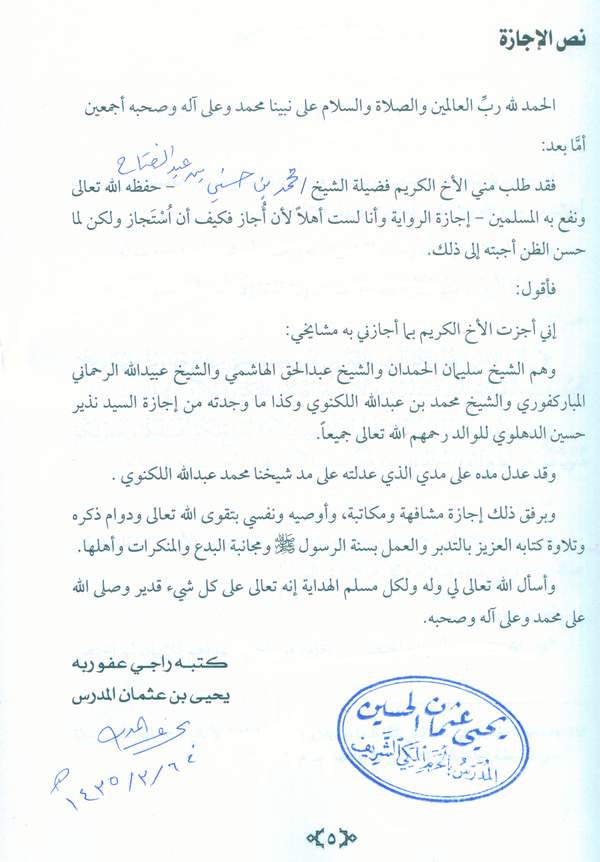 نص الإجازة
الحمد لله ربِّ العالمين والصلاة والسلام على نبينا محمد وعلى آله وصحبه أجمعين
أمَّا بعد:
فقد طلب مني الأخ الكريم فضيلة الشيخ / محمد بن حسني بن عبد الفتاح – حفظه الله تعالى
ونفع به المسلمين – إجازة الرواية وأنا لست أهلاً لأن أُجاز فكيف أن اُسْتَجاز ولكن لما
حسن الظن أجبته إلى ذلك.
فأقول:
إني أجزت الأخ الكريم بما أجازني به مشايخي:
وهم الشيخ سليمان الحمدان والشيخ عبدالحق الهاشمي والشيخ عبيدالله الرحماني
المباركفوري والشيخ محمد بن عبدالله اللكنوي وكذا ما وجدته من إجازة السيد نذير
حسين الدهلوي للوالد رحمهم الله تعالى جميعاً.
وقد عدل مده على مدي الذي عدلته على مد شيخنا محمد عبدالله اللكنوي .
وبرفق ذلك إجازة مشافهة ومكاتبة، وأوصيه ونفسي بتقوى الله تعالى ودوام ذكره
وتلاوة كتابه العزيز بالتدبر والعمل بسنة الرسول ﷺ ومجانبة البدع والمنكرات وأهلها.
وأسأل الله تعالى لي وله ولكل مسلم الهداية إنه تعالى على كل شيء قدير وصلى الله
على محمد وعلى آله وصحبه.
كتبه راجي عفوربه
يحيى بن عثمان المدرس
يحيى عثمان الحسين
المُدَرِّسُ بالحَرَمِ المَكِّي الشَّرِيف
٥